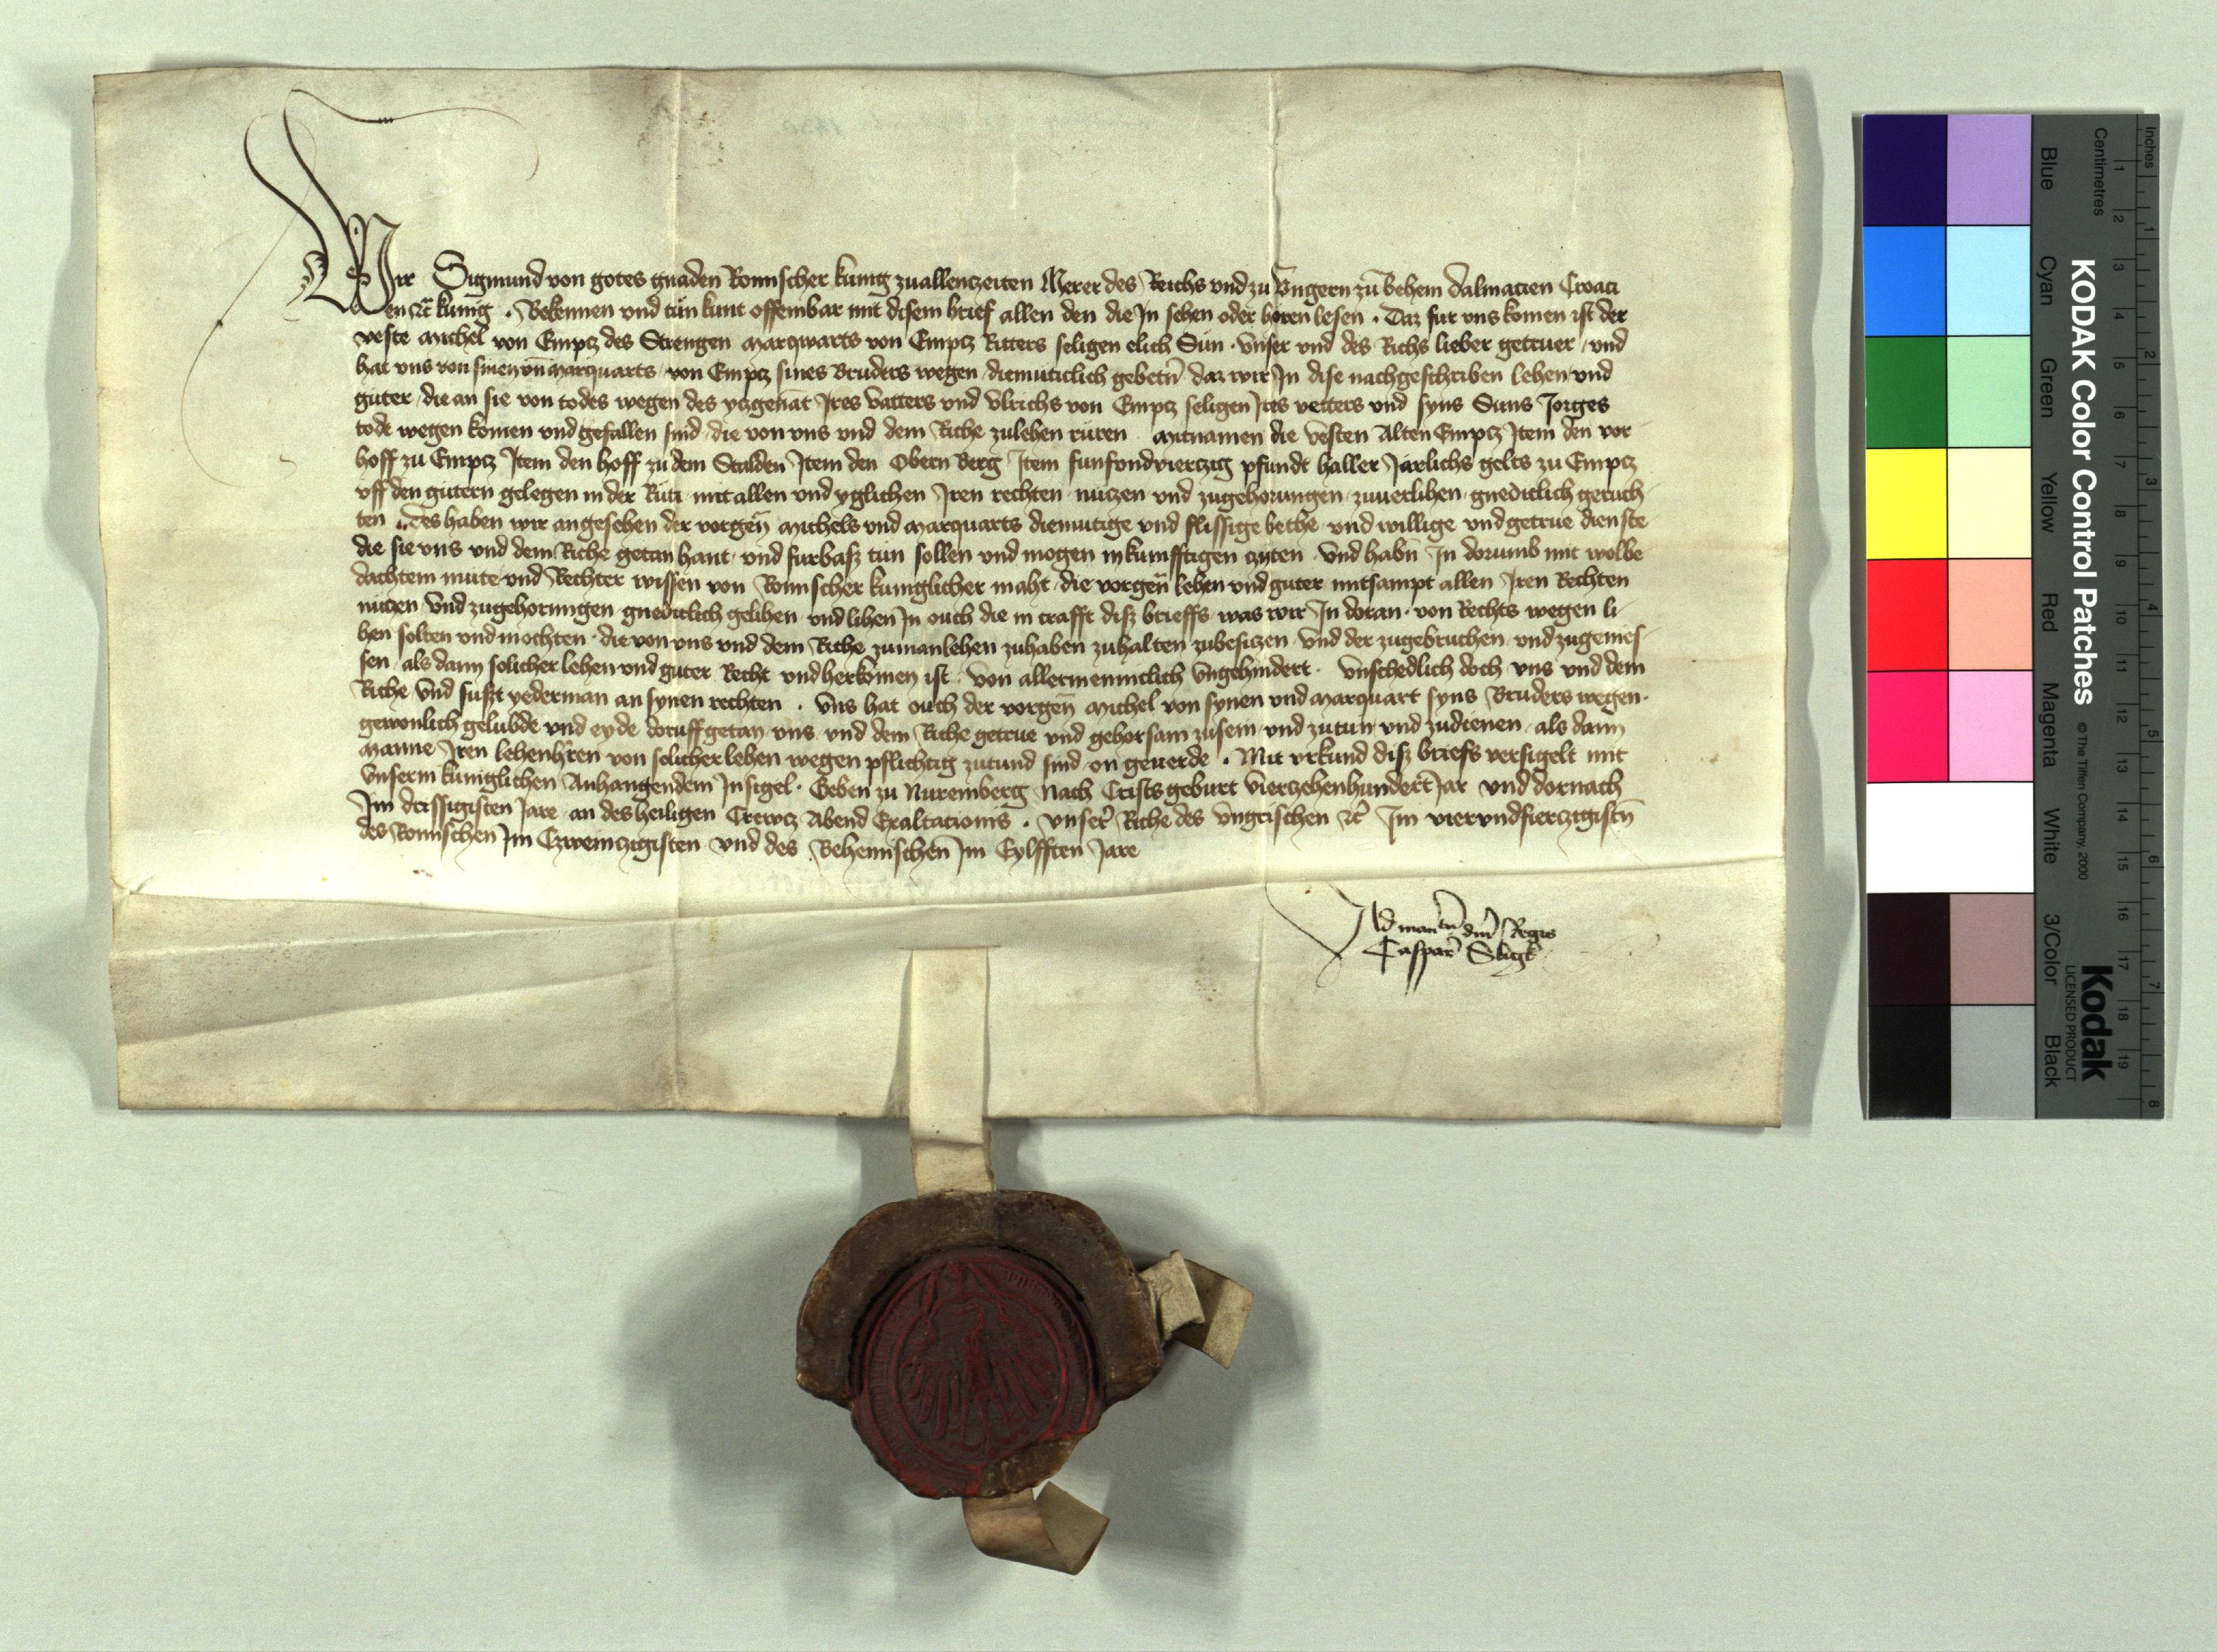 Wir Sigmund von gotes gnaden Romischer kunig zuallenczeiten Merer des Reichs vnd zu Vngern zu Behem Dalmatien Croaci
en etc kunig . Bekennen vnd tun kunt offembar mit disem brief allen den die In sehen oder horen lesen . Daz fur vns komen ist der
veste Michel von Empcz des Strengen Marquarts von Empcz Ritters seligen elich Sun . vnser vnd des Richs lieber getruer / vnd
hat vns von sinen vn Marquarts von Empcz sines Bruders wegen diemuticlich gebetn daz wir In dise nachgeschriben lehen vnd
guter / die an sie von todes wegen des yczgenat Ires vatters vnd Vlrichs von Empcz seligen Irs vetters vnd syns Suns Jorges
tode wegen komen vnd gefallen sind / die von vns vnd dem Riche zulehen ruren . mitnamen die vesten Alten Empcz Item den vor
hoff zu Empcz Item den hoff zu dem Stalden Item den Obern Berg Item funfondvierczig pfundt haller Jarlichs gelts zu Empcz
vff den gutern gelegen in der Ruti mit allen vnd yglichen Iren rechten nuczen vnd zugehorungen zuuerlihen gnediclich geruch
ten . des haben wir angesehen der vorgen Michels vnd Marquarts diemutige vnd flissige bethe vnd willige vnd getrue dienste
die sie vns vnd dem Riche getan hant vnd furbasz tun sollen vnd mogen in kumfftigen czyten . vnd habn In dorumb mit wolbe
dachtem mute vnd Rechter wissen von Romischer kuniglicher maht die vorgen lehen vnd guter mitsampt allen Iren Rechten
nuczen vnd zugehorungen gnediclich gelihen vnd lihen In ouch die in crafft disz brieffs was wir In doran von Rechts wegen li
hen solten vnd mochten . die von vns vnd dem Riche zumanlehen zuhaben zuhalten zubesiczen vnd der zugebruchen vnd zugenies
sen als dann solicher lehen vnd guter Recht vnd herkomen ist . von allermeniclich vngehindert . vnschedlich doch vns vnd dem
Riche vnd suszt yederman an synen rechten . Vns hat ouch der vorgen Michel von synen vnd Marquart syns Bruders wegen .
gewonlich gelubde vnd eyde doruff getan vns vnd dem Riche getrue vnd gehorsam zusein vnd zutun vnd zudienen als dann
manne Iren lehenhren von solicher lehen wegen pflichtig zutund sind on geuerde . Mit vrkund disz briefs versigelt mit
vnserm kuniglichen Anhangendem Insigel . Geben zu Nuremberg Nach Crists geburt vierczehenhundert Jar vnd dornach
Im drissigisten Jare an des heiligen Crewcz Abend Exaltacionis . vnser Riche des vngrischen etc Im viervndfierczigistn
des Romischen Im Czweinczigisten vnd des Behemischen Im Eylfften Jare
Ad mantu dni Regis
Caspar Sligk
KODAK Color Control Patches
© The Tiffen Company, 2000
Kodak
LICENSED PRODUCT
Inches 1 2 3 4 5 6 7 8
Centimetres 1 2 3 4 5 6 7 8 9 10 11 12 13 14 15 16 17 18 19
Blue Cyan Green Yellow Red Magenta White 3/Color Black